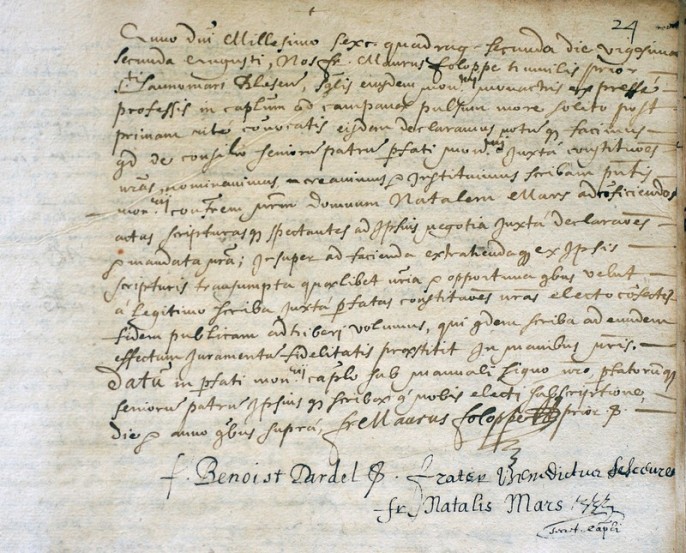 24
Anno dni Millesimo sexc. quadrag. secunda die vigesima
secunda Augusti, Nos fr. Maurus foloppe humilis prior
Sti Launomari Blesen, singulis eiusdem monrii monachis expressé
professis in caplum ad campanae pulsum more solito post
primam rite convocatis eisdem declaramus notum q3 facimus
qd de consilio seniorum patrum pfati monrii Juxta constituões
nras, nominavimus, creavimus & Instituimus scribam pntis
monrii confrem nrum domnum Natalem Mars ad conficiendos
actus scripturasq3 spectantes ad Ipsius negotia Juxta declarãoes
& mandata nra; Insuper ad facienda extrahendaq3 ex Ipsis
scripturis transumpta quaelibet nria & opportuna qbus velut
á legitimo scriba Juxta pfatas constituões nras electo
fidem publicam adhiberi volumus, qui qdem scriba ad eundem
effectum Juramentum fidelitatis praestitit In manibus nris.
Datum in pfati monrii caplo sub manuali signo nro pfatorumq3
seniorum patrum Ipsius q3 scribae á nobis electi subscriptione,
die & anno qbus supra, fr Maurus foloppe prior
f. Benoist Dardel . frater Benedictus
fr. Natalis Mars
Scret. capli